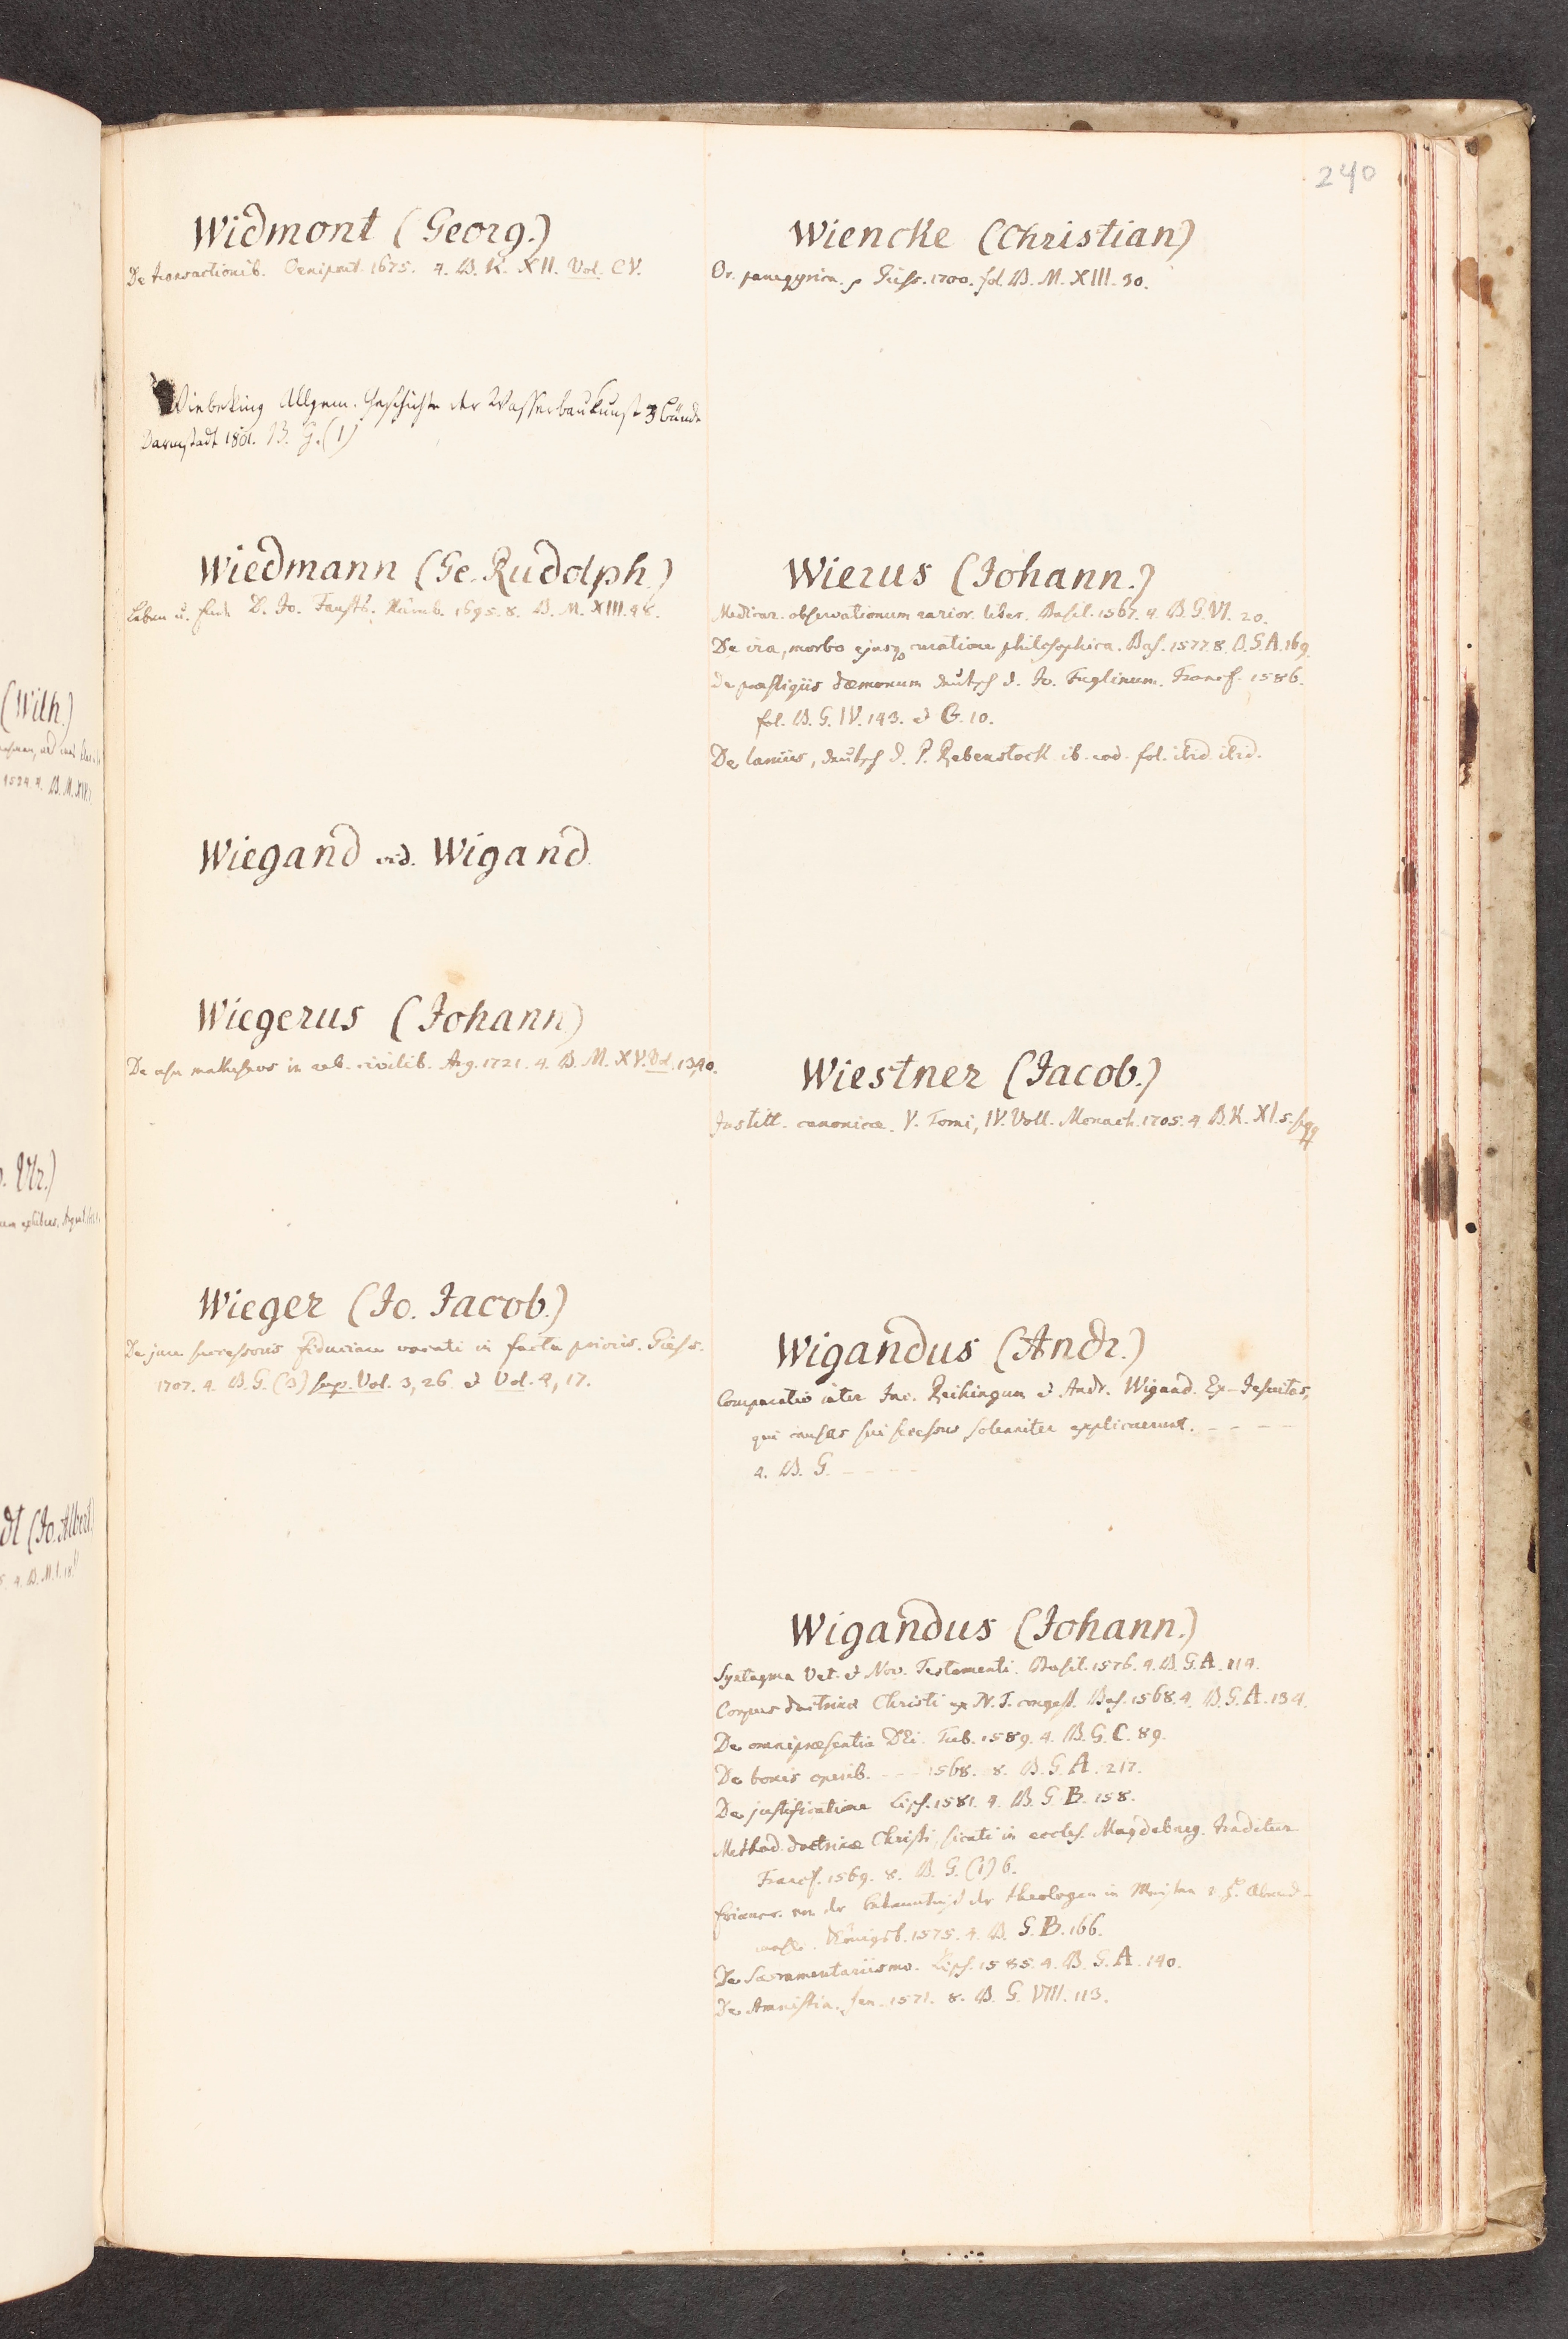 240
Widmont (Georg.)
De transactionib. Oenipont. 1675. 4. B. K. XII. Vol. CV.
Wiebeking Allgem. Geschichte der Wasserbaukunst 3 Bände
Darmstadt 1801. B. G. (1)
Wiedmann (Ge. Rudolph.)
Leben u. Ende D. Jo. Fausts. Nürnb. 1695. 8. B. M. XIII. 48.
Wiegand vid. Wigand.
Wiegerus (Johann)
De usu matheseos in reb. civilib. Arg. 1721. 4. B. M. XV. Vol. 13,40.
Wieger (Jo. Jacob.)
De jure successoris fiduciam vocati in facta prioris. Giess.
1707. 4. B. G. (3) sup. Vol. 3, 26 & Vol. 4, 17.
Wiencke (Christian)
Or. panegyrica. Giess. 1700. fol. B. M. XIII. 30.
Wierus (Johann.)
Medicar. observationum rarior. liber. Basil. 1567. 4. B. G. VI. 20.
De ira, morbo ejusq curatione philosophica. Bas. 1577. 8. B. G. A. 169.
De praestigiis daemonum deutsch d. Jo. Fuglinum. Francf. 1586.
fol. B. G. IV. 143. & G. 10.
De lamiis, deutsch d. P. Rebenstock ib. eod. fol. ibid. ibid.
Wiestner (Jacob.)
Instit. canonicæ. V. Tomi, IV. Voll. Monach. 1705. 4 B. K. XI. 5. sqq
Wigandus (Andr.)
Comparatio inter Jac. Reihingum & Andr. Wigand. Ex-Jesuitas,
qui causas sui secessus solenniter explicaerunt. - - - -
4. B. G. - - - -
Wigandus (Johann.)
Syntagma Vet. & Nov. Testamenti. Basil. 1576. 4. B. G. A. 114.
Corpus doctrinæ Christi ex N. T. congest. Bas. 1568. 4. B. G. A. 134.
De omnipræsentia DEi. Tub. 1589. 4. B. G. C. 89.
De bonis operib. - - - 1568. 8. B. G. A. 217.
De justificatione Lips. 1581. 4. B. G. B. 158.
Method. doctrinæ Christi, sicuti in eccles. Magdeburg. traditur
Francf. 1569. 8. B. G. (1) 6.
von der bekenntniß der theologen in Meißen v. H. Abend-
mahl. Königsb. 1575. 4. B. G. B. 166.
De Sacramentariismo. Lips. 1585. 4. B. G. A. 140.
De Amnistia. Jen. 1571. 8. B. G. VIII. 113.